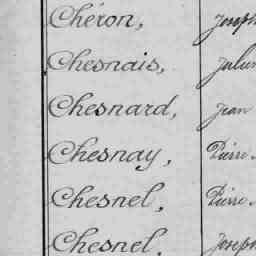 Chéron, Joseph
Chesnais, Julien
Chesnard, Jean
Chesnay, Pierre
Chesnel, Pierre
Chesnel, Joseph